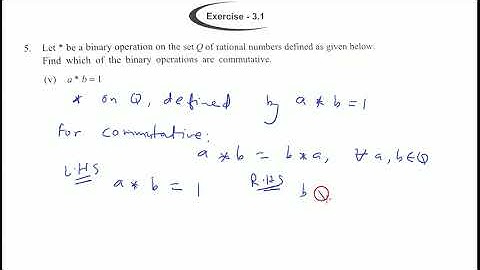 Exercise - 3.1
5. Let * be a binary operation on the set Q of rational numbers defined as given below.
Find which of the binary operations are commutative.
(v) a * b = 1
* on Q, defined by a * b = 1
For commutative:
a * b = b * a, ∀ a, b ∈ Q
L.H.S a * b = 1 R.H.S b